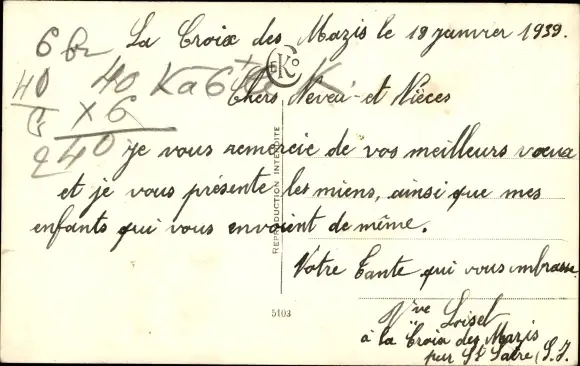 La Croix des Mazis le 18 janvier 1939.
6
40
40
x 6
240
Chers Neveu et Nièces
je vous remercie de vos meilleurs vœux
et je vous présente les miens, ainsi que mes
enfants qui vous envoient de même.
Votre Tante qui vous embrasse
Vve Loisel
à la Croix des Mazis
par St Satre (S. I.
REPRODUCTION INTERDITE
5103